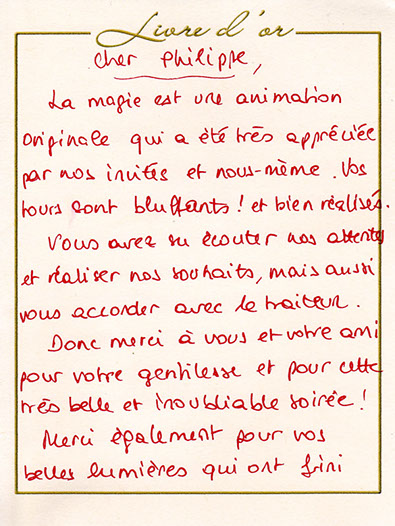 Livre d'or
Cher Philippe,
La magie est une animation
originale qui a été très appréciée
par nos invités et nous-même. Vos
tours sont bluffants ! et bien réalisés.
Vous avez su écouter nos attentes
et réaliser nos souhaits, mais aussi
vous accorder avec le traiteur.
Donc merci à vous et votre ami
pour votre gentillesse et pour cette
très belle et inoubliable soirée !
Merci également pour vos
belles lumières qui ont fini